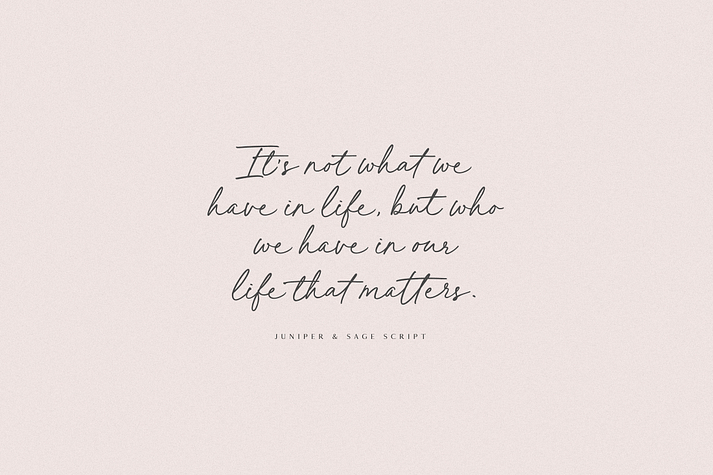 It's not what we
have in life, but who
we have in our
life that matters.
JUNIPER & SAGE SCRIPT